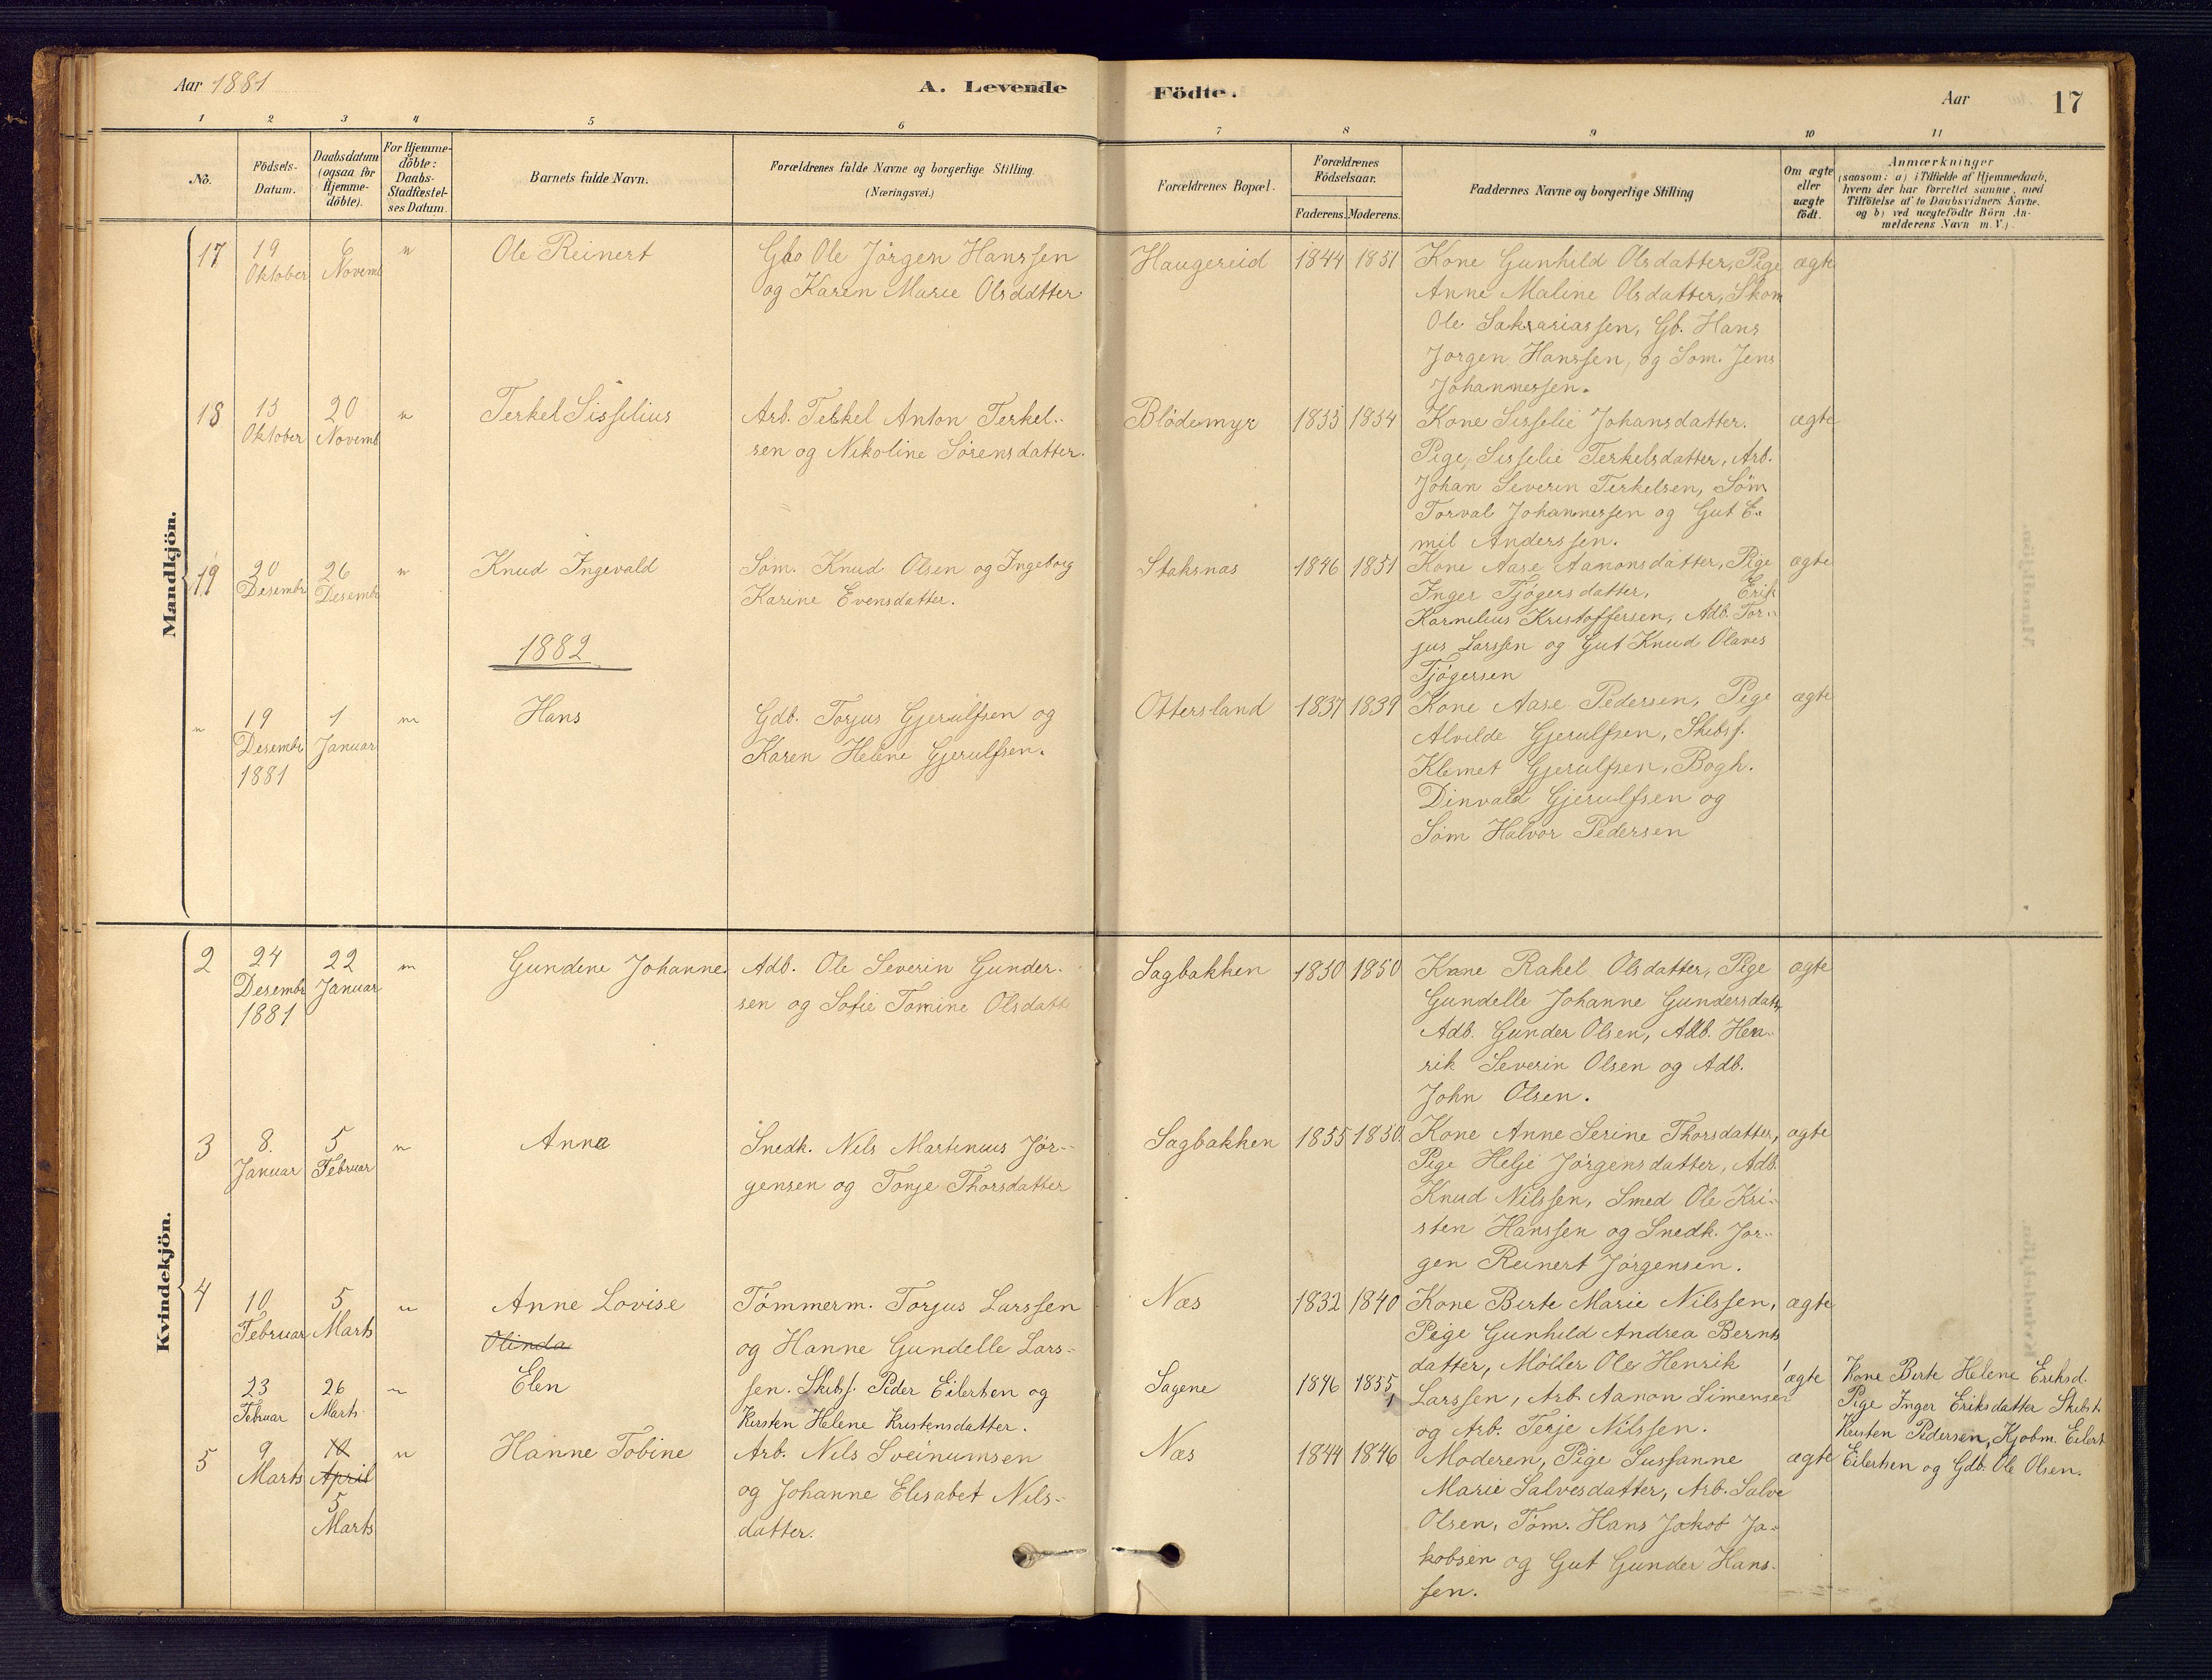 Aar 1881
A. Levende Födte.
Aar 17
1 2 3 4 5 6 7 8 9 10 11
No.
Födsels-
Datum.
Daabsdatum
(ogsaa for
Hjemme-
döbte).
For Hjemme-
döbte:
Daabs-
Stadfæstel-
ses Datum.
Barnets fulde Navn.
Forældrenes fulde Navne og borgerlige Stilling.
(Næringsvei.)
Forældrenes Bopæl.
Forældrenes
Födselsaar.
Faderens. Moderens.
Faddernes Navne og borgerlige Stilling
Om ægte
eller
uægte
födt.
Anmærkninger
(saasom: a) i Tilfælde af Hjemmedaab,
hvem der har forrettet samme, med
Tilföielse af to Daabsvidners Navne.
og b) ved uægtefödte Börn An-
melderens Navn m. V.)
Mandkjön.
17
19
Oktober
6
Novemb
"
Ole Reinert
Gbo Ole Jörgen Hanssen
og Karen Marie Olsdatter
Haugereid
1844 1851
Kone Gunhild Olsdatter, Pige
Anne Maline Olsdatter, Skom
Ole Sakrariassen, Gb. Hans
Jorgen Hanssen, og Som. Jens
Johannessen.
ægte
18
13
Oktober
20
Novemb
"
Terkel Sisselius
Arb. Tekkel Anton Terkel-
sen og Nikoline Sörensdatter.
Blödemyr
1833 1834
Kone Sisselie Johansdatter.
Pige, Sisselie Terkelsdatter, Arb.
Johan Severin Terkelsen, Söm
Torval Johannessen og Gut E-
mil Anderssen.
ægte
19
20
Desembr
26
Desembr
"
Knud Ingevald
Som. Knud Olsen og Ingeborg
Karine Evensdatter.
Staksnas
1846 1851
Kone Aase Aanonsdatter, Pige
Inger Tjögersdatter, Erik
Kornelius Kristoffersen, Adb. Tor-
jus Larssen og Gut Knud Olaves
Tjögersen
ægte
1882
"
19
Desembr
1881
1
Januar
"
Hans
Gdb. Torjus Gjerulfsen og
Karen Helene Gjerulfsen.
Ottersland
1837 1839
Kone Aase Pedersen, Pige
Alvilde Gjerulfsen, Skibsf.
Klemet Gjerulfsen, Bogh.
Dinvald Gjerulfsen og
Söm Halvor Pedersen
ægte
Kvindekjön.
2
24
Desembr
1881
22
Januar
"
Gundine Johanne
Adb. Ole Severin Gunder-
sen og Sofie Tomine Olsdatt
Sagbakken
1830 1850
Kone Rakel Olsdatter, Pige
Gundelle Johanne Gundersdatt,
Adb. Gunder Olsen, Adb. Hen-
rik Severin Olsen og Adb.
John Olsen.
ægte
3
8.
Januar
5
Februar
"
Anna
Snedk. Nils Martinius Jör-
gensen og Tonje Thorsdatter
Sagbakken
1855 1850
Kone Anne Serine Thorsdatter,
Pige Helje Jörgensdatter, Adb.
Knud Nilssen, Smed Ole Kri-
sten Hanssen og Snedk. Jor-
gen Reinert Jörgensen.
ægte
4
10
Februar
5
Marts
"
Anne Lovise
Olinda
Tömmerm. Torjus Larssen
og Hanne Gundelle Lars-
sen.
Næs
1832 1840
Kone Berte Marie Nilssen,
Pige Gunhild Andrea Bernts
datter, Möller Ole Henrik
Larssen, Arb. Aanon Simensen
og Arb. Terje Nilssen.
ægte
23
Februar
26
Marts
"
Elen
Skibsf. Peder Eilertsen og
Kirsten Helene Kristensdatter.
Sagene
1846 1855
ægte
Kone Berte Helene Eriksd.
Pige Inger Eriksdatter Skibst.
Kristen Pedersen, Kjobm. Eilert
Eilertsen og Gdb. Ole Olsen.
5
9
Marts
10
April
5
Marts
"
Hanne Tobine
Arb. Nils Sveinumsen
og Johanne Elisabet Nils-
datter.
Næs
1844 1846
Moderen, Pige Sussanne
Marie Salvesdatter, Arb. Salve
Olsen, Töm. Hans Jakob Ja-
kobsen og Gut Gunder Hans-
sen.
ægte